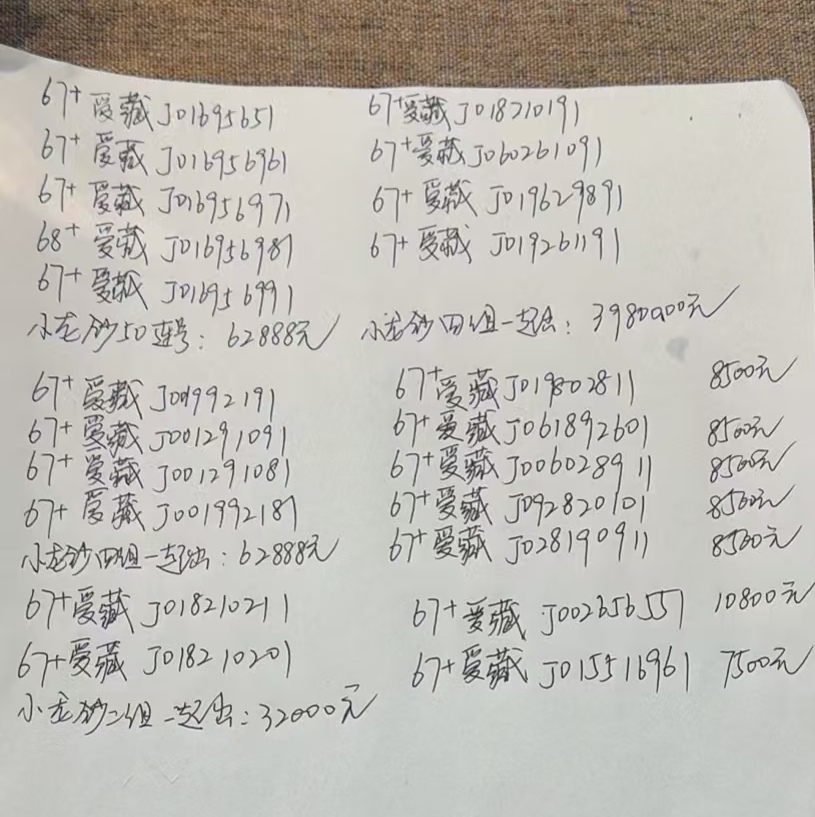 67+ 爱藏 J01695651
67+ 爱藏 J016956961
67+ 爱藏 J016956971
68+ 爱藏 J016956981
67+ 爱藏 J016956991
小龙钞50连号：62888元
67+爱藏 J018210191
67+爱藏 J060261091
67+ 爱藏 J019629891
67+ 爱藏 J019261191
小龙钞四组一起出：39800.00元
67+ 爱藏 J001992191
67+ 爱藏 J001291091
67+ 爱藏 J001291081
67+ 爱藏 J001992181
小龙钞四组一起出：62888元
67+爱藏 J018210211
67+爱藏 J018210201
小龙钞二组一起出：32000元
67+爱藏 J019802811 8500元
67+爱藏 J061892601 8500元
67+爱藏 J006028911 8500元
67+爱藏 J092820101 8500元
67+爱藏 J028190911 8500元
67+爱藏 J002656551 10800元
67+爱藏 J015516961 7500元